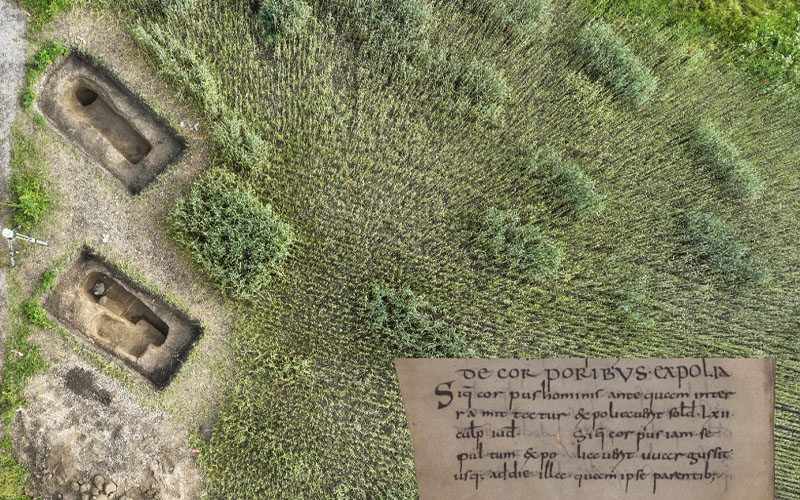 DE COR PORIBVS EXPOLIA
Siq cor pus hominis ante quem inter
ra mit tectur & policcuerit sold Lxii
culp iud. Siq cor pus iam se
pul tum & po
usq; ad die illa quem ipse parentib;